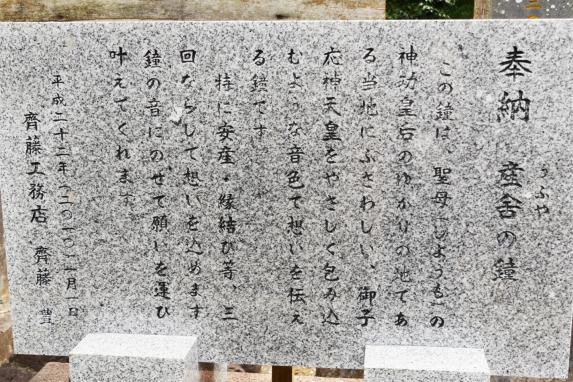 奉納 産舎の鐘
うぶや
この鐘は、聖母(しようも)の
神功皇后のゆかりの地であ
る当地にふさわしい、御子
応神天皇をやさしく包み込
むような音色で想いを伝え
る鐘です
特に安産・縁結び等、三
回ならして想いを込めます
鐘の音にのせて願いを運び
叶えてくれます
平成二十二年(二〇一〇)一月一日
齊藤工務店 齊藤 豊